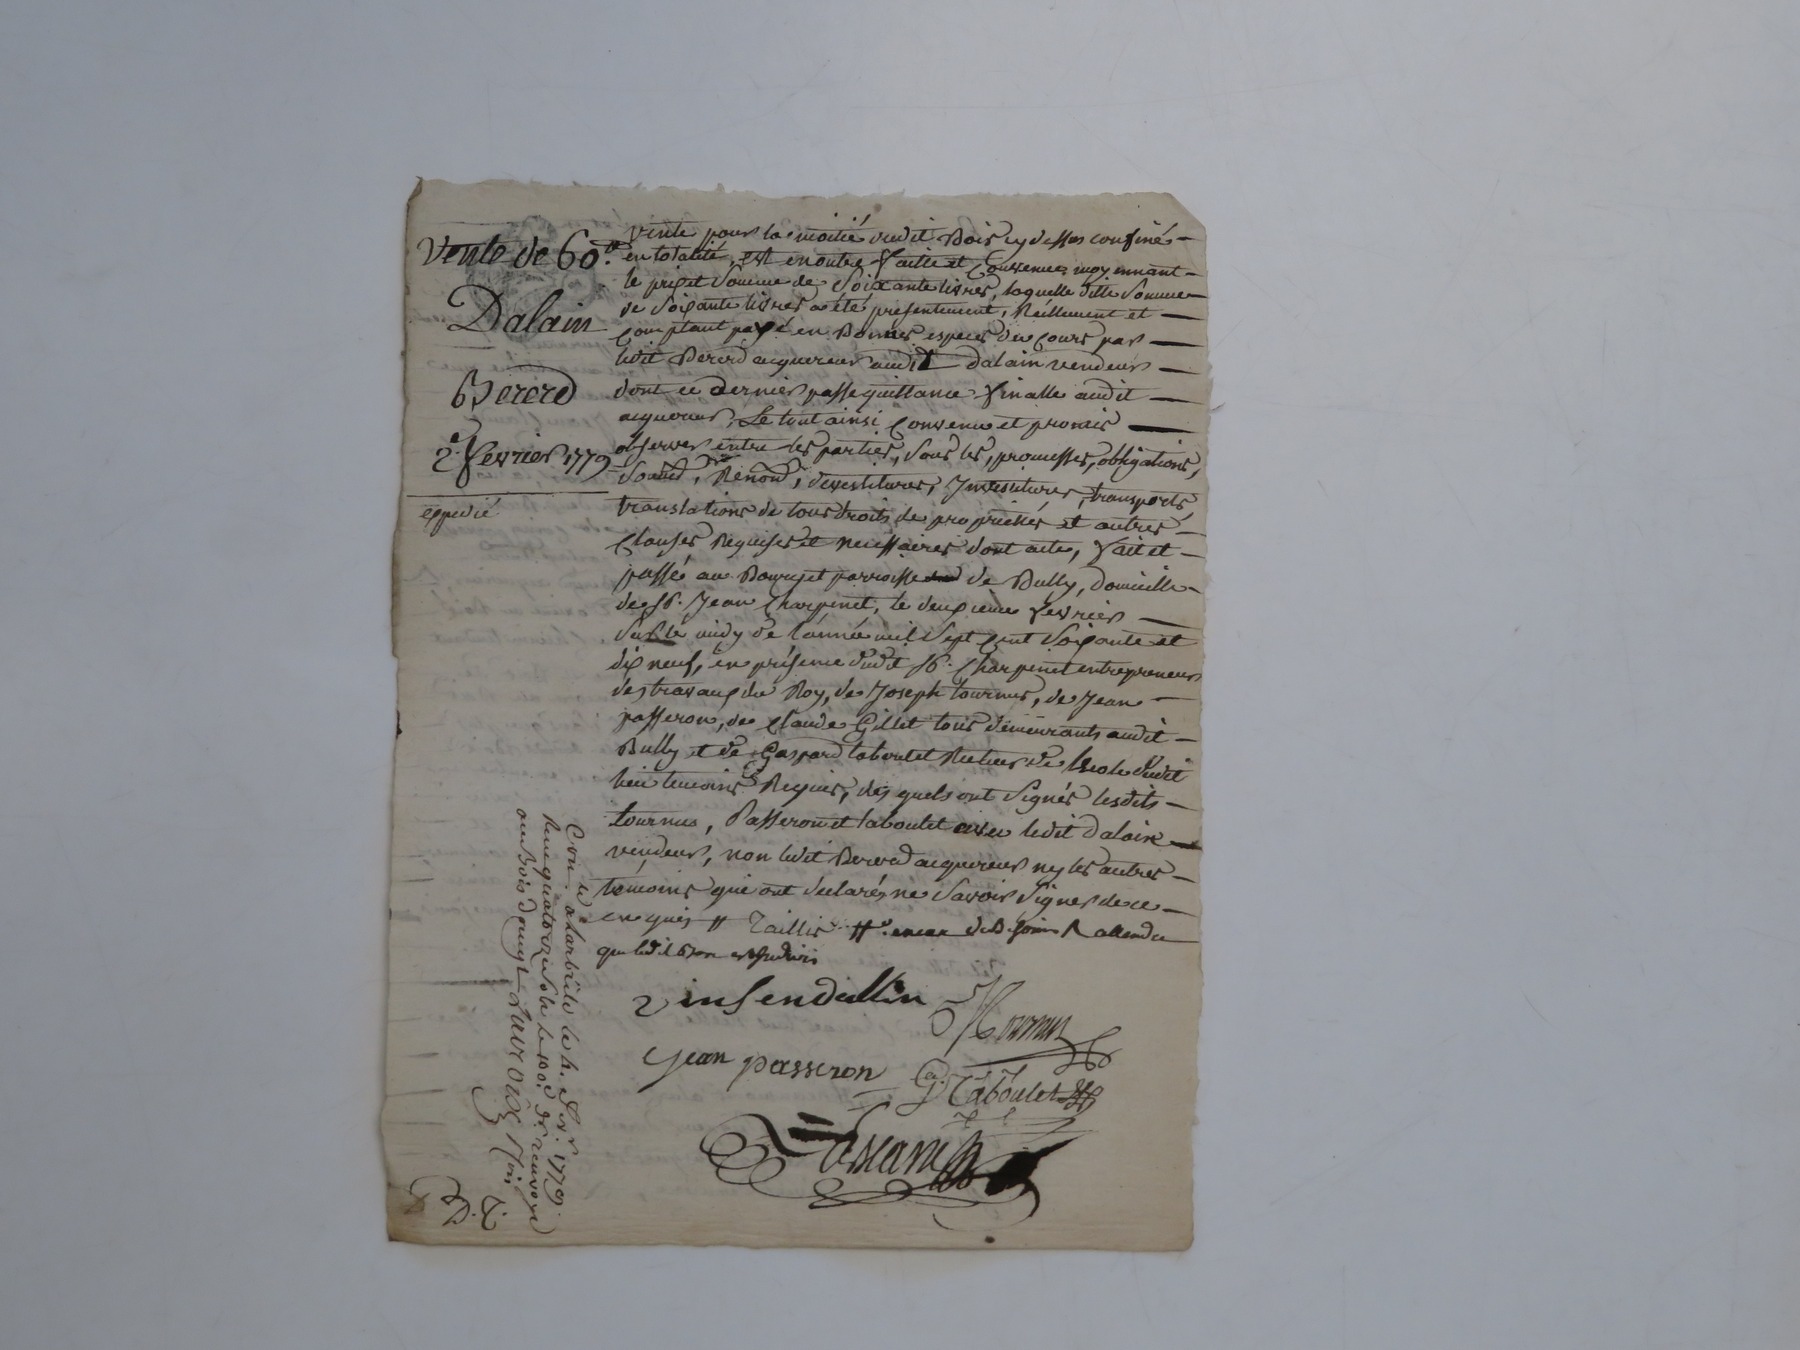 Vente de 60.tt
Dalain
Bererd
2.e fevrier 1779
expedié
vente pour la moitié dudit Bois cy dessus confiné
en totalité, est en outre faitte et Convenue moyennant
le prix et Somme de Soixante livres, laquelle ditte Somme
de Soixante livres a été présentement, Réellement et
Comptant payé en Bonnes especes du Cours par
ledit Bererd acquereur audit Dalain vendeur
dont ce dernier passe quittance finalle audit
acquereur, Le tout ainsi Convenu et promis
observer entre les parties, sous les promesses, obligations,
Soumd, Renond, devestitures, Investitures, transports,
translations de tous droits de propriétés et autres
Clauses Requises et necessaires dont acte, fait et
passé au Bourg et parroisse de Bully, domicille
de Sr. Jean Charpenet, le deuxieme fevrier
midy de l'année mil Sept Cent Soixante et
dix neuf, en présence dudit Sr. Charpenet entrepreneur
des travaux du Roy, de Joseph tournus, de Jean
passeron, de Claude Gillet tous demeurants audit
Bully et de Gaspard taboulet Recteur de lecole dudit
lieu temoins Requis, des quels ont Signés lesdits
tournus, Passeron et taboulet avec ledit Dalain
vendeur, non ledit Bererd acquereur ny les autres
témoins qui ont declarés ne Savoir Signer de ce
enquis # Taillis #
que ledit
vinsendallin
Tournus
jean passeron
G. Taboulet
Con. a Larbresle le 4. fev. 1779.
Reçu quatorze sols